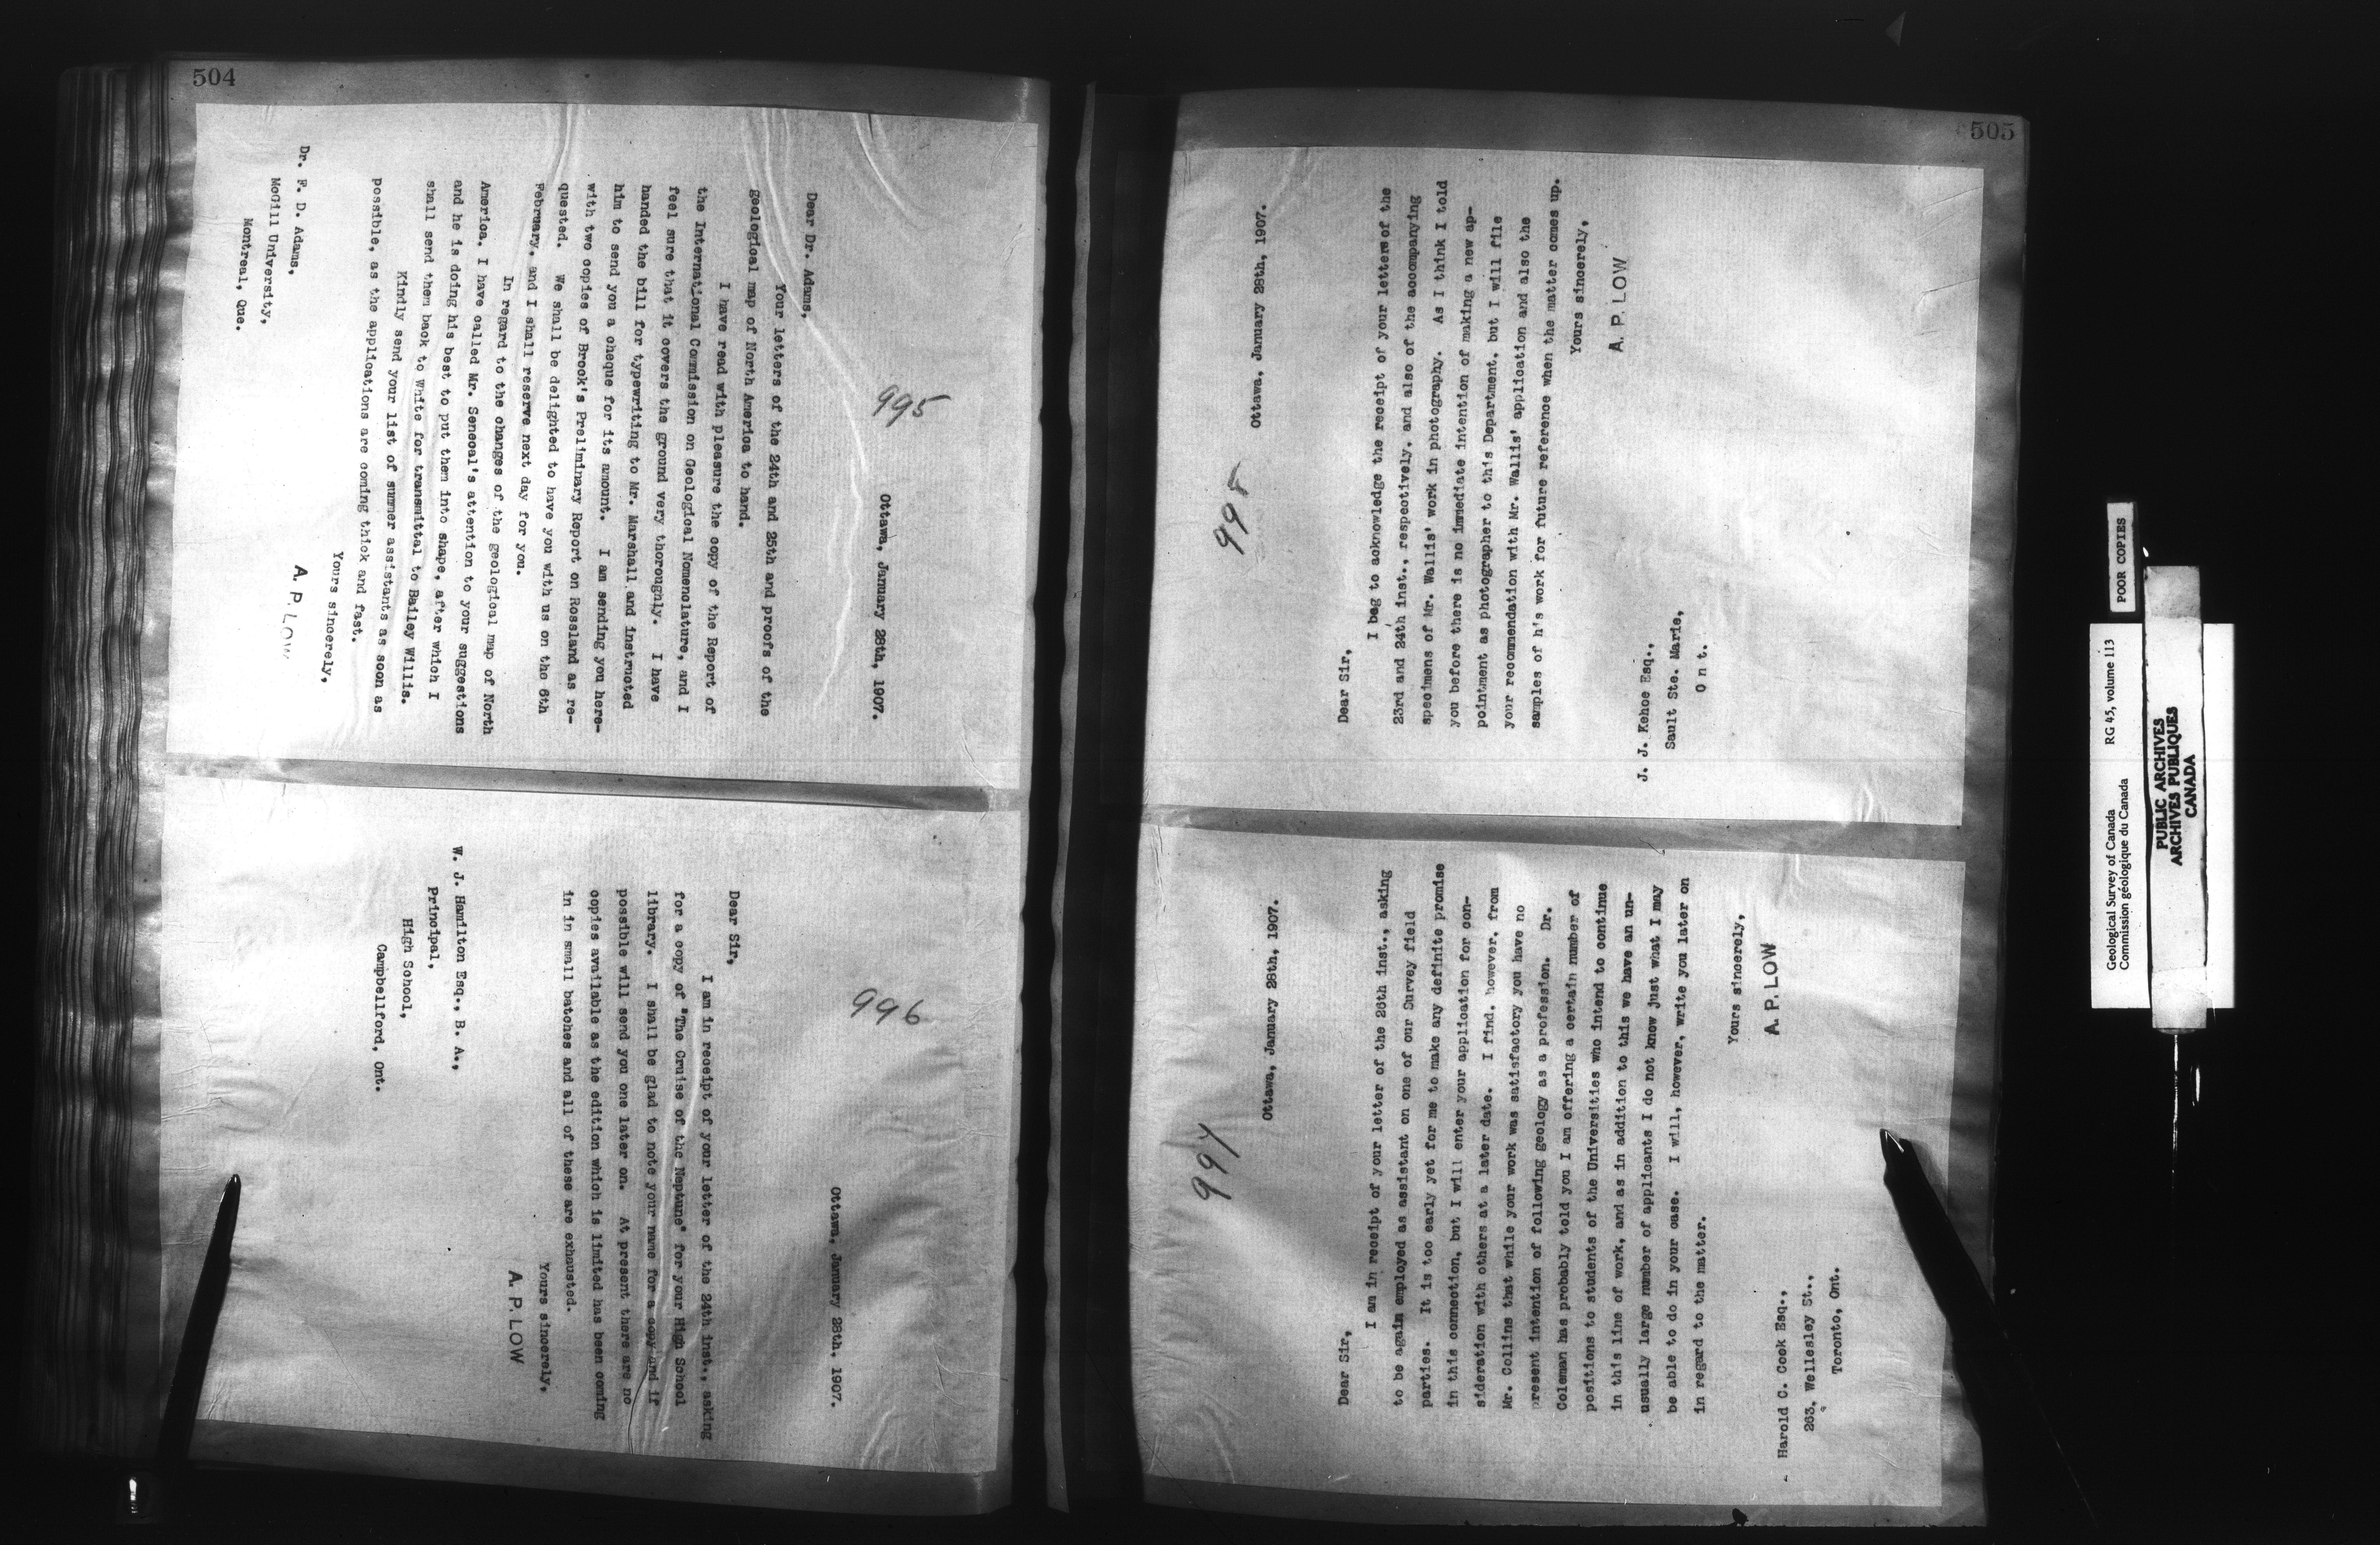 504
995
Ottawa, January 28th, 1907.
Dear Dr. Adams,
Your letters of the 24th and 25th and proofs of the
geological map of North America to hand.
I have read with pleasure the copy of the Report of
the International Commission on Geological Nomenclature, and I
feel sure that it covers the ground very thoroughly. I have
handed the bill for typewriting to Mr. Marshall and instructed
him to send you a cheque for its amount. I am sending you here-
with two copies of Brock's Preliminary Report on Rossland as re-
quested. We shall be delighted to have you with us on the 6th
February, and I shall reserve next day for you.
In regard to the changes of the geological map of North
America. I have called Mr. Senecal's attention to your suggestions
and he is doing his best to put them into shape, after which I
shall send them back to White for transmittal to Bailey Willis.
Kindly send your list of summer assistants as soon as
possible, as the applications are coming thick and fast.
Yours sincerely,
A. P. LOW
Dr. F. D. Adams,
McGill University,
Montreal, Que.
996
Ottawa, January 28th, 1907.
Dear Sir,
I am in receipt of your letter of the 24th inst., asking
for a copy of "The Cruise of the Neptune" for your High School
library. I shall be glad to note your name for a copy and if
possible will send you one later on. At present there are no
copies available as the edition which is limited has been coming
in in small batches and all of these are exhausted.
Yours sincerely,
A. P. LOW
W. J. Hamilton Esq., B. A.,
Principal,
High School,
Campbellford, Ont.
505
998
Ottawa, January 28th, 1907.
Dear Sir,
I beg to acknowledge the receipt of your letters of the
23rd and 24th inst., respectively, and also of the accompanying
specimens of Mr. Wallis' work in photography. As I think I told
you before there is no immediate intention of making a new ap-
pointment as photographer to this Department, but I will file
your recommendation with Mr. Wallis' application and also the
samples of his work for future reference when the matter comes up.
Yours sincerely,
A. P. LOW
J. J. Kehoe Esq.,
Sault Ste. Marie,
Ont.
997
Ottawa, January 28th, 1907.
Dear Sir,
I am in receipt of your letter of the 26th inst., asking
to be again employed as assistant on one of our Survey field
parties. It is too early yet for me to make any definite promise
in this connection, but I will enter your application for con-
sideration with others at a later date. I find, however, from
Mr. Collins that while your work was satisfactory you have no
present intention of following geology as a profession. Dr.
Coleman has probably told you I am offering a certain number of
positions to students of the Universities who intend to continue
in this line of work, and as in addition to this we have an un-
usually large number of applicants I do not know just what I may
be able to do in your case. I will, however, write you later on
in regard to the matter.
Yours sincerely,
A. P. LOW
Harold C. Cook Esq.,
263, Wellesley St.,
Toronto, Ont.
POOR COPIES
Geological Survey of Canada RG 45, volume 113
Commission géologique du Canada
PUBLIC ARCHIVES
ARCHIVES PUBLIQUES
CANADA